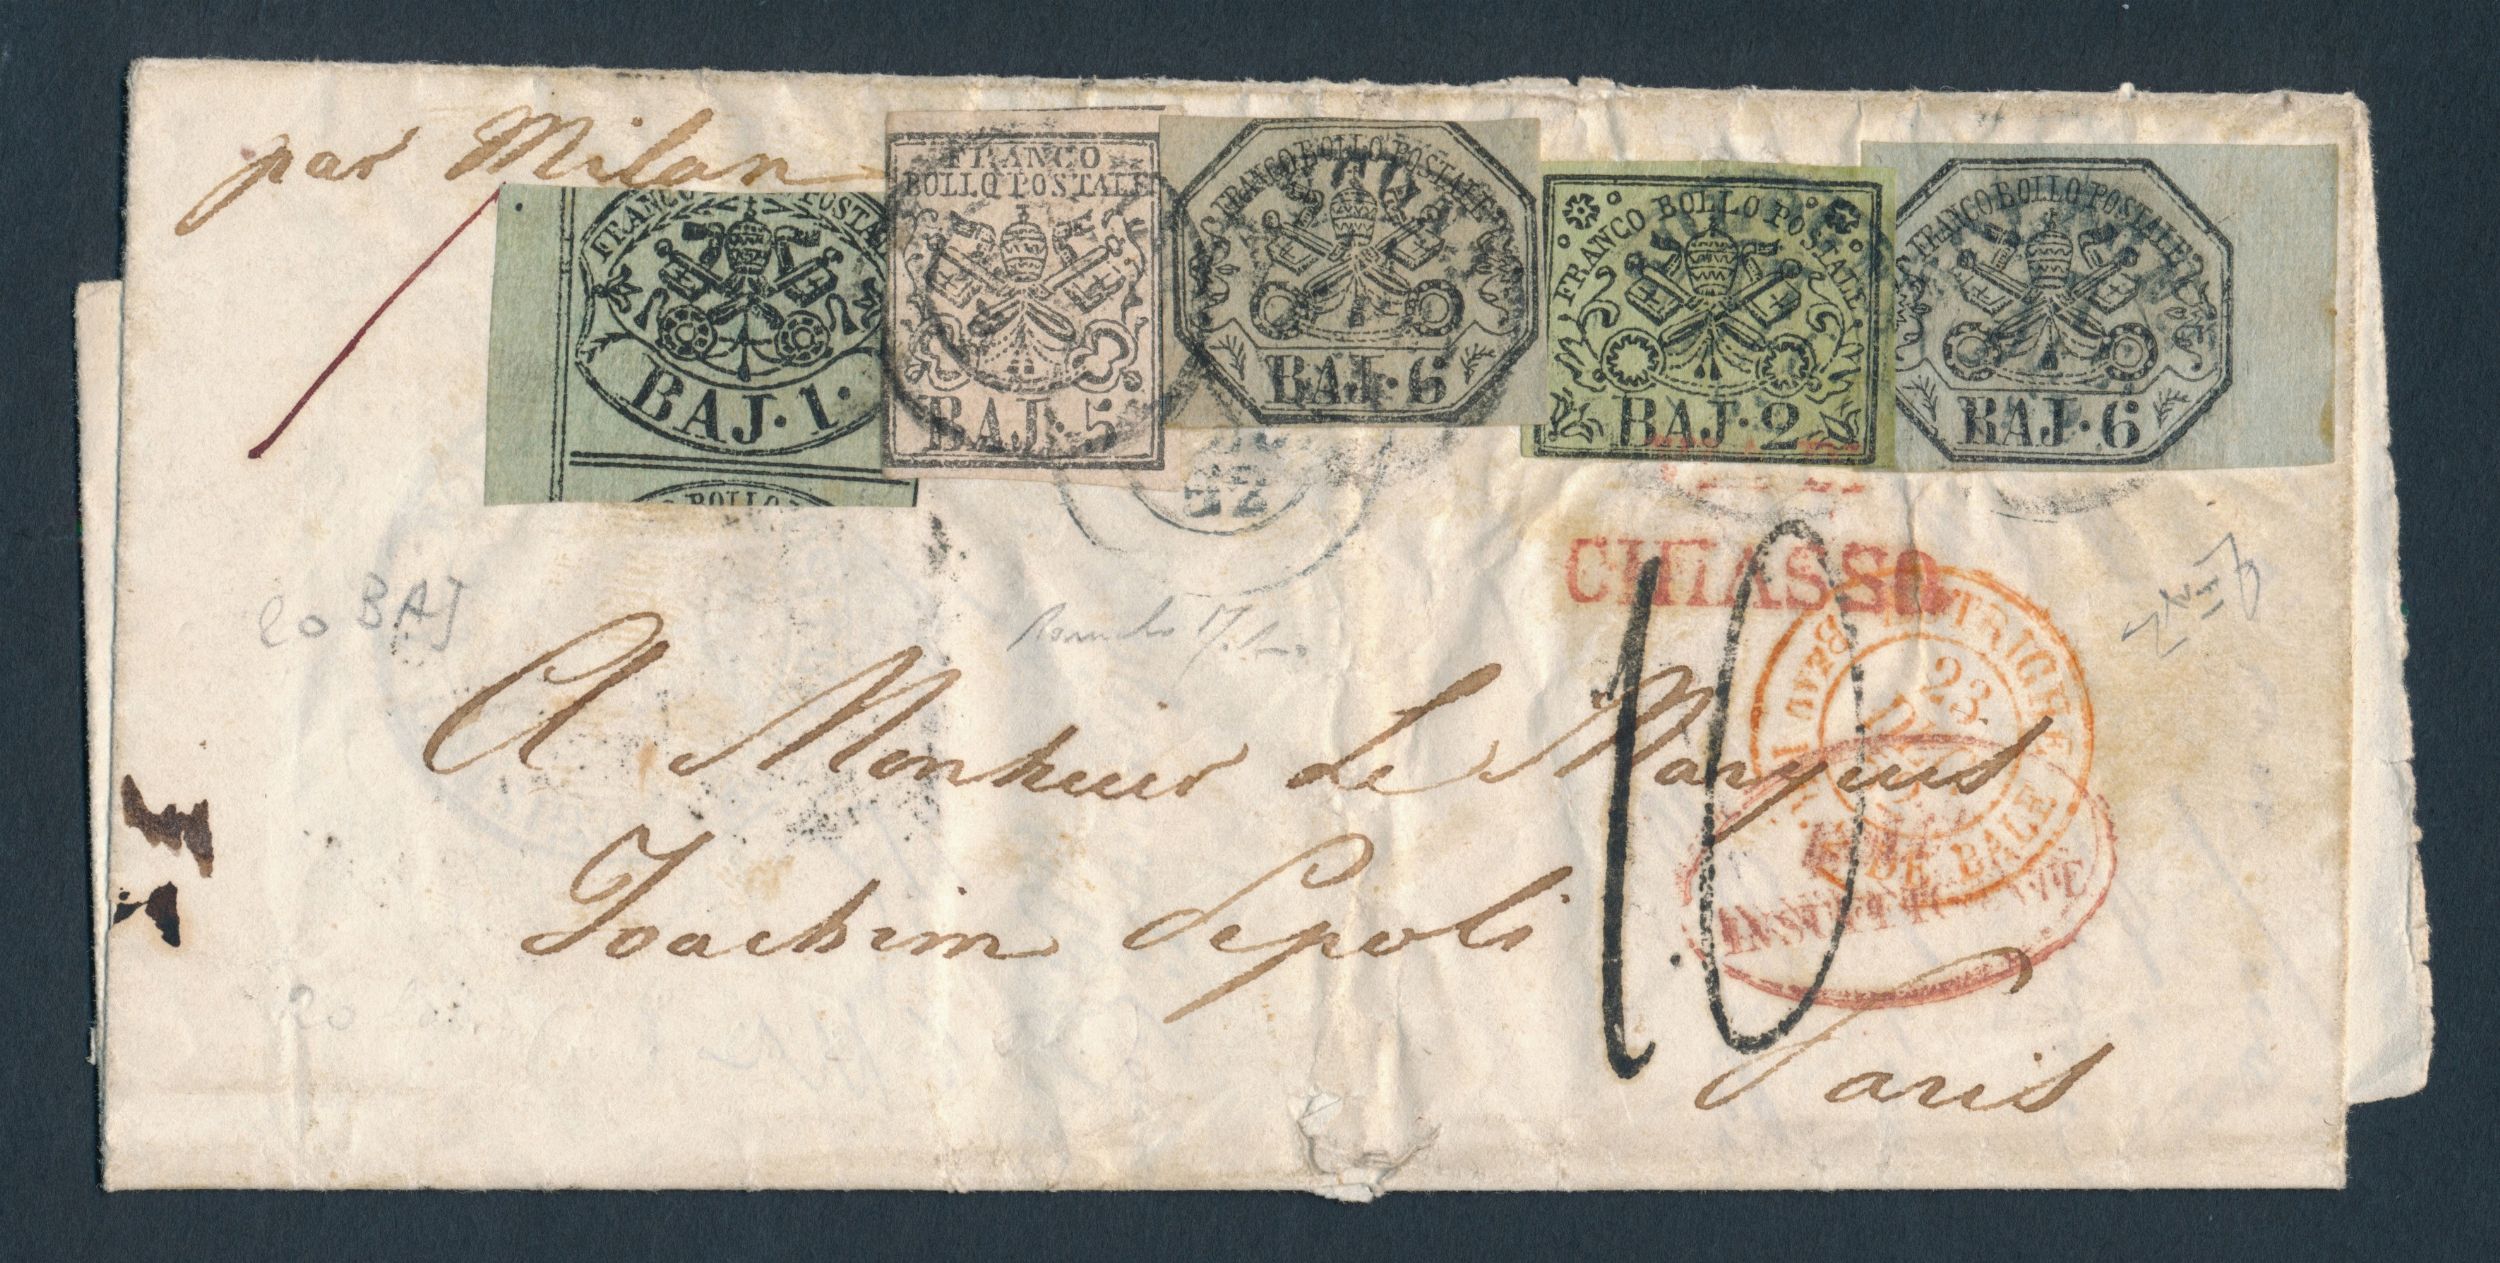 par Milan
FRANCO POSTAL
BAJ·1·
BOLLO
FRANCO
BOLLO POSTALE
BAJ·5
FRANCO BOLLO POSTALE
BAJ·6
FRANCO BOLLO POSTALE
BAJ·2
FRANCO BOLLO POSTALE
BAJ·6
52
CHIASSO
20 BAJ
10
23
DE BALE
INSUFFICIENTE
A Monsieur le Marquis
Joachim Pepoli
Paris